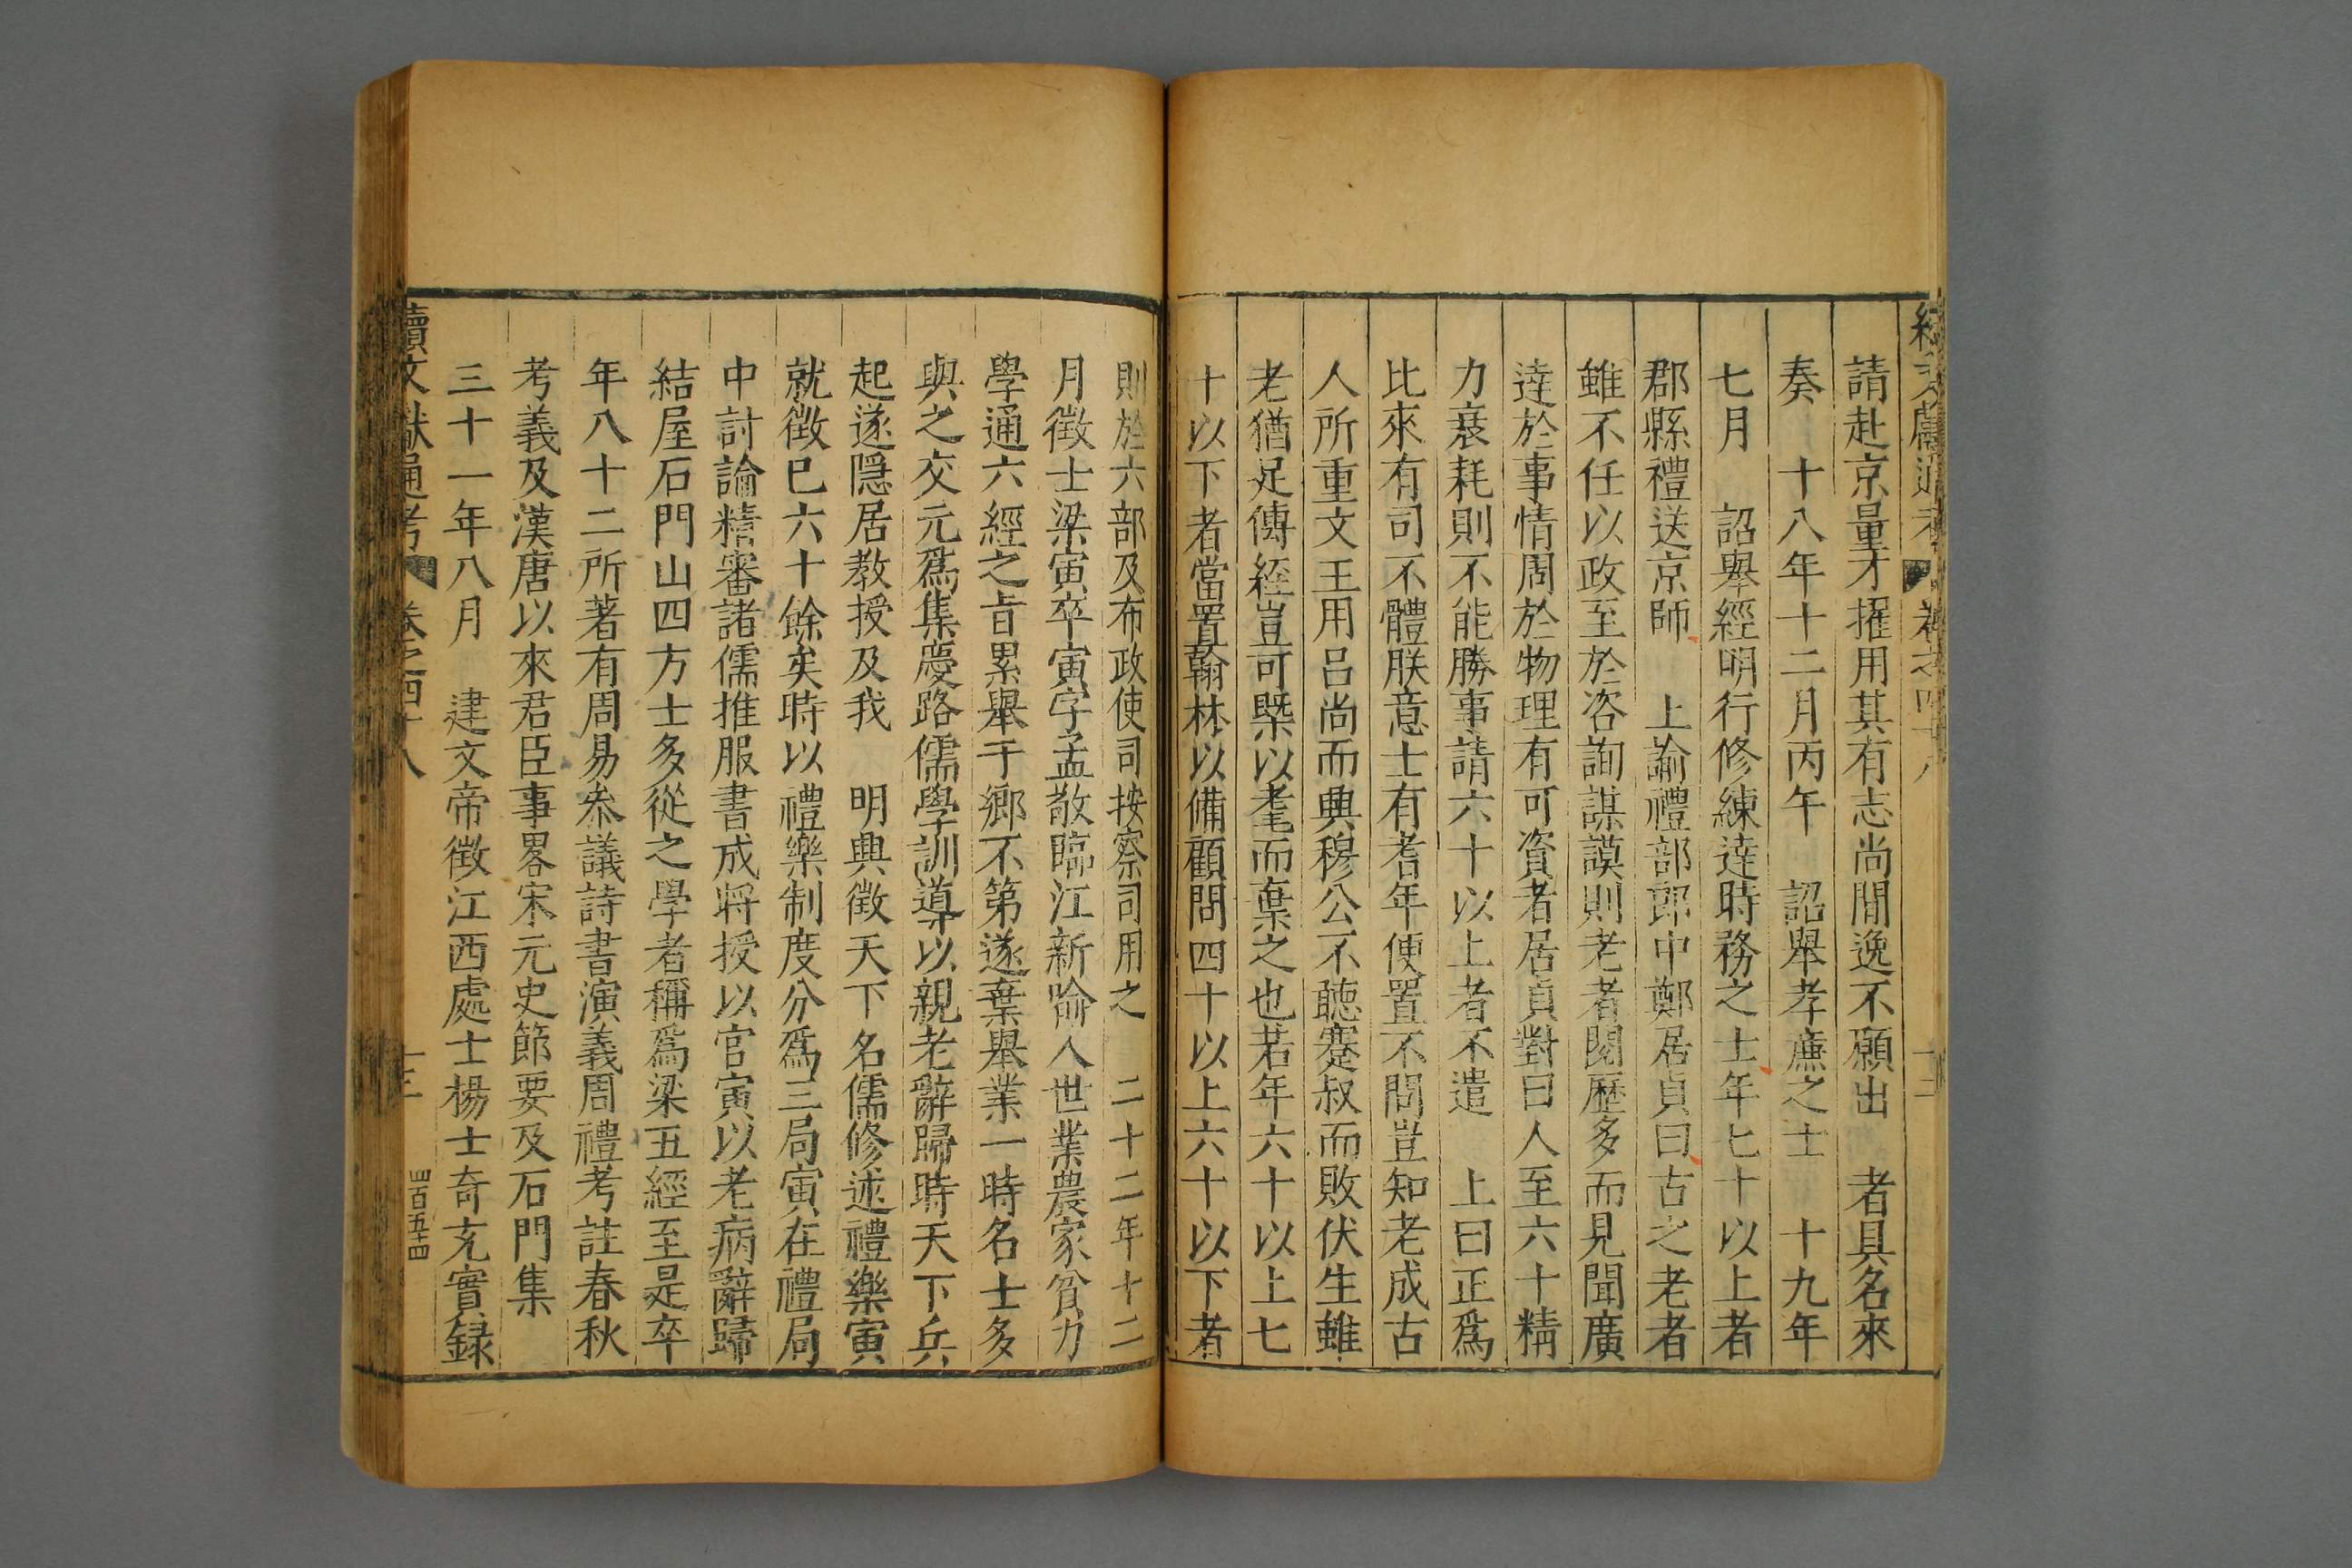 請赴京量才擢用其有志尚閒逸不願出　者具名來
奏　十八年十二月丙午　詔舉孝廉之士　十九年
七月　詔舉經明行修練達時務之士年七十以上者
郡縣禮送京師　上諭禮部郎中鄭居貞曰古之老者
雖不任以政至於咨詢謀謨則老者閱歷多而見聞廣
達於事情周於物理有可資者居貞對曰人至六十精
力衰耗則不能勝事請六十以上者不遣　上曰正爲
比來有司不體朕意士有耆年便置不問豈知老成古
人所重文王用呂尚而興穆公不聽蹇叔而敗伏生雖
老猶足傳經豈可槩以耄而棄之也若年六十以上七
十以下者當置翰林以備顧問四十以上六十以下者
則於六部及布政使司按察司用之　二十二年十二
月徵士梁寅卒寅字孟敬臨江新喻人世業農家貧力
學通六經之旨累舉于鄉不第遂棄舉業一時名士多
與之交元爲集慶路儒學訓導以親老辭歸時天下兵
起遂隠居教授及我　明興徵天下名儒修述禮樂寅
就徵已六十餘矣時以禮樂制度分爲三局寅在禮局
中討論精審諸儒推服書成將授以官寅以老病辭歸
結屋石門山四方士多從之學者稱爲梁五經至是卒
年八十二所著有周易叅議詩書演義周禮考註春秋
考義及漢唐以來君臣事畧宋元史節要及石門集
三十一年八月　建文帝徵江西處士楊士奇充實錄
續文獻通考　卷之四十八　十三　四百五十四